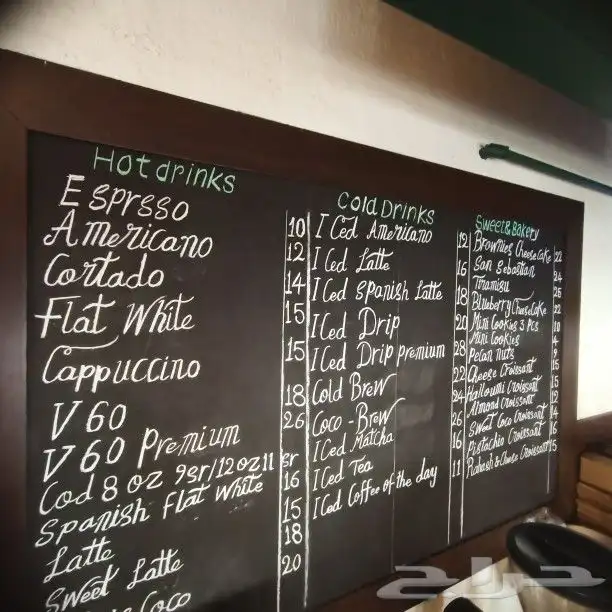 Hot drinks
Esprsso
Americano
Cortado
Flat White
Cappuccino
V60
V60 Premium
Cod 8 oz 9sr/12oz 11 sr
Spanish Flat White
Latte
Sweet Latte
Coco
10
12
14
15
15
18
26
16
15
18
20
Cold Drinks
ICed Americano
ICed Latte
ICed Spanish Latte
ICed Drip
ICed Drip premium
Cold Brew
Coco-Brew
ICed Matcha
ICed Tea
ICed Coffee of the day
12
16
18
20
28
22
24
26
16
11
Sweet&Bakery
Brownies CheeseCake 22
San Sebastian 24
Tiramisu 26
Blueberry CheeseCake 22
Mini Cookies 3 Pcs 10
Mini Cookies 4
Pecan nuts 9
Cheese Croissant
Halloumi Croissant 15
Almond Croissant 12
Sweet Coco Croissant 14
Pistachio Croissant 16
Cheese Croissant 15
حراج